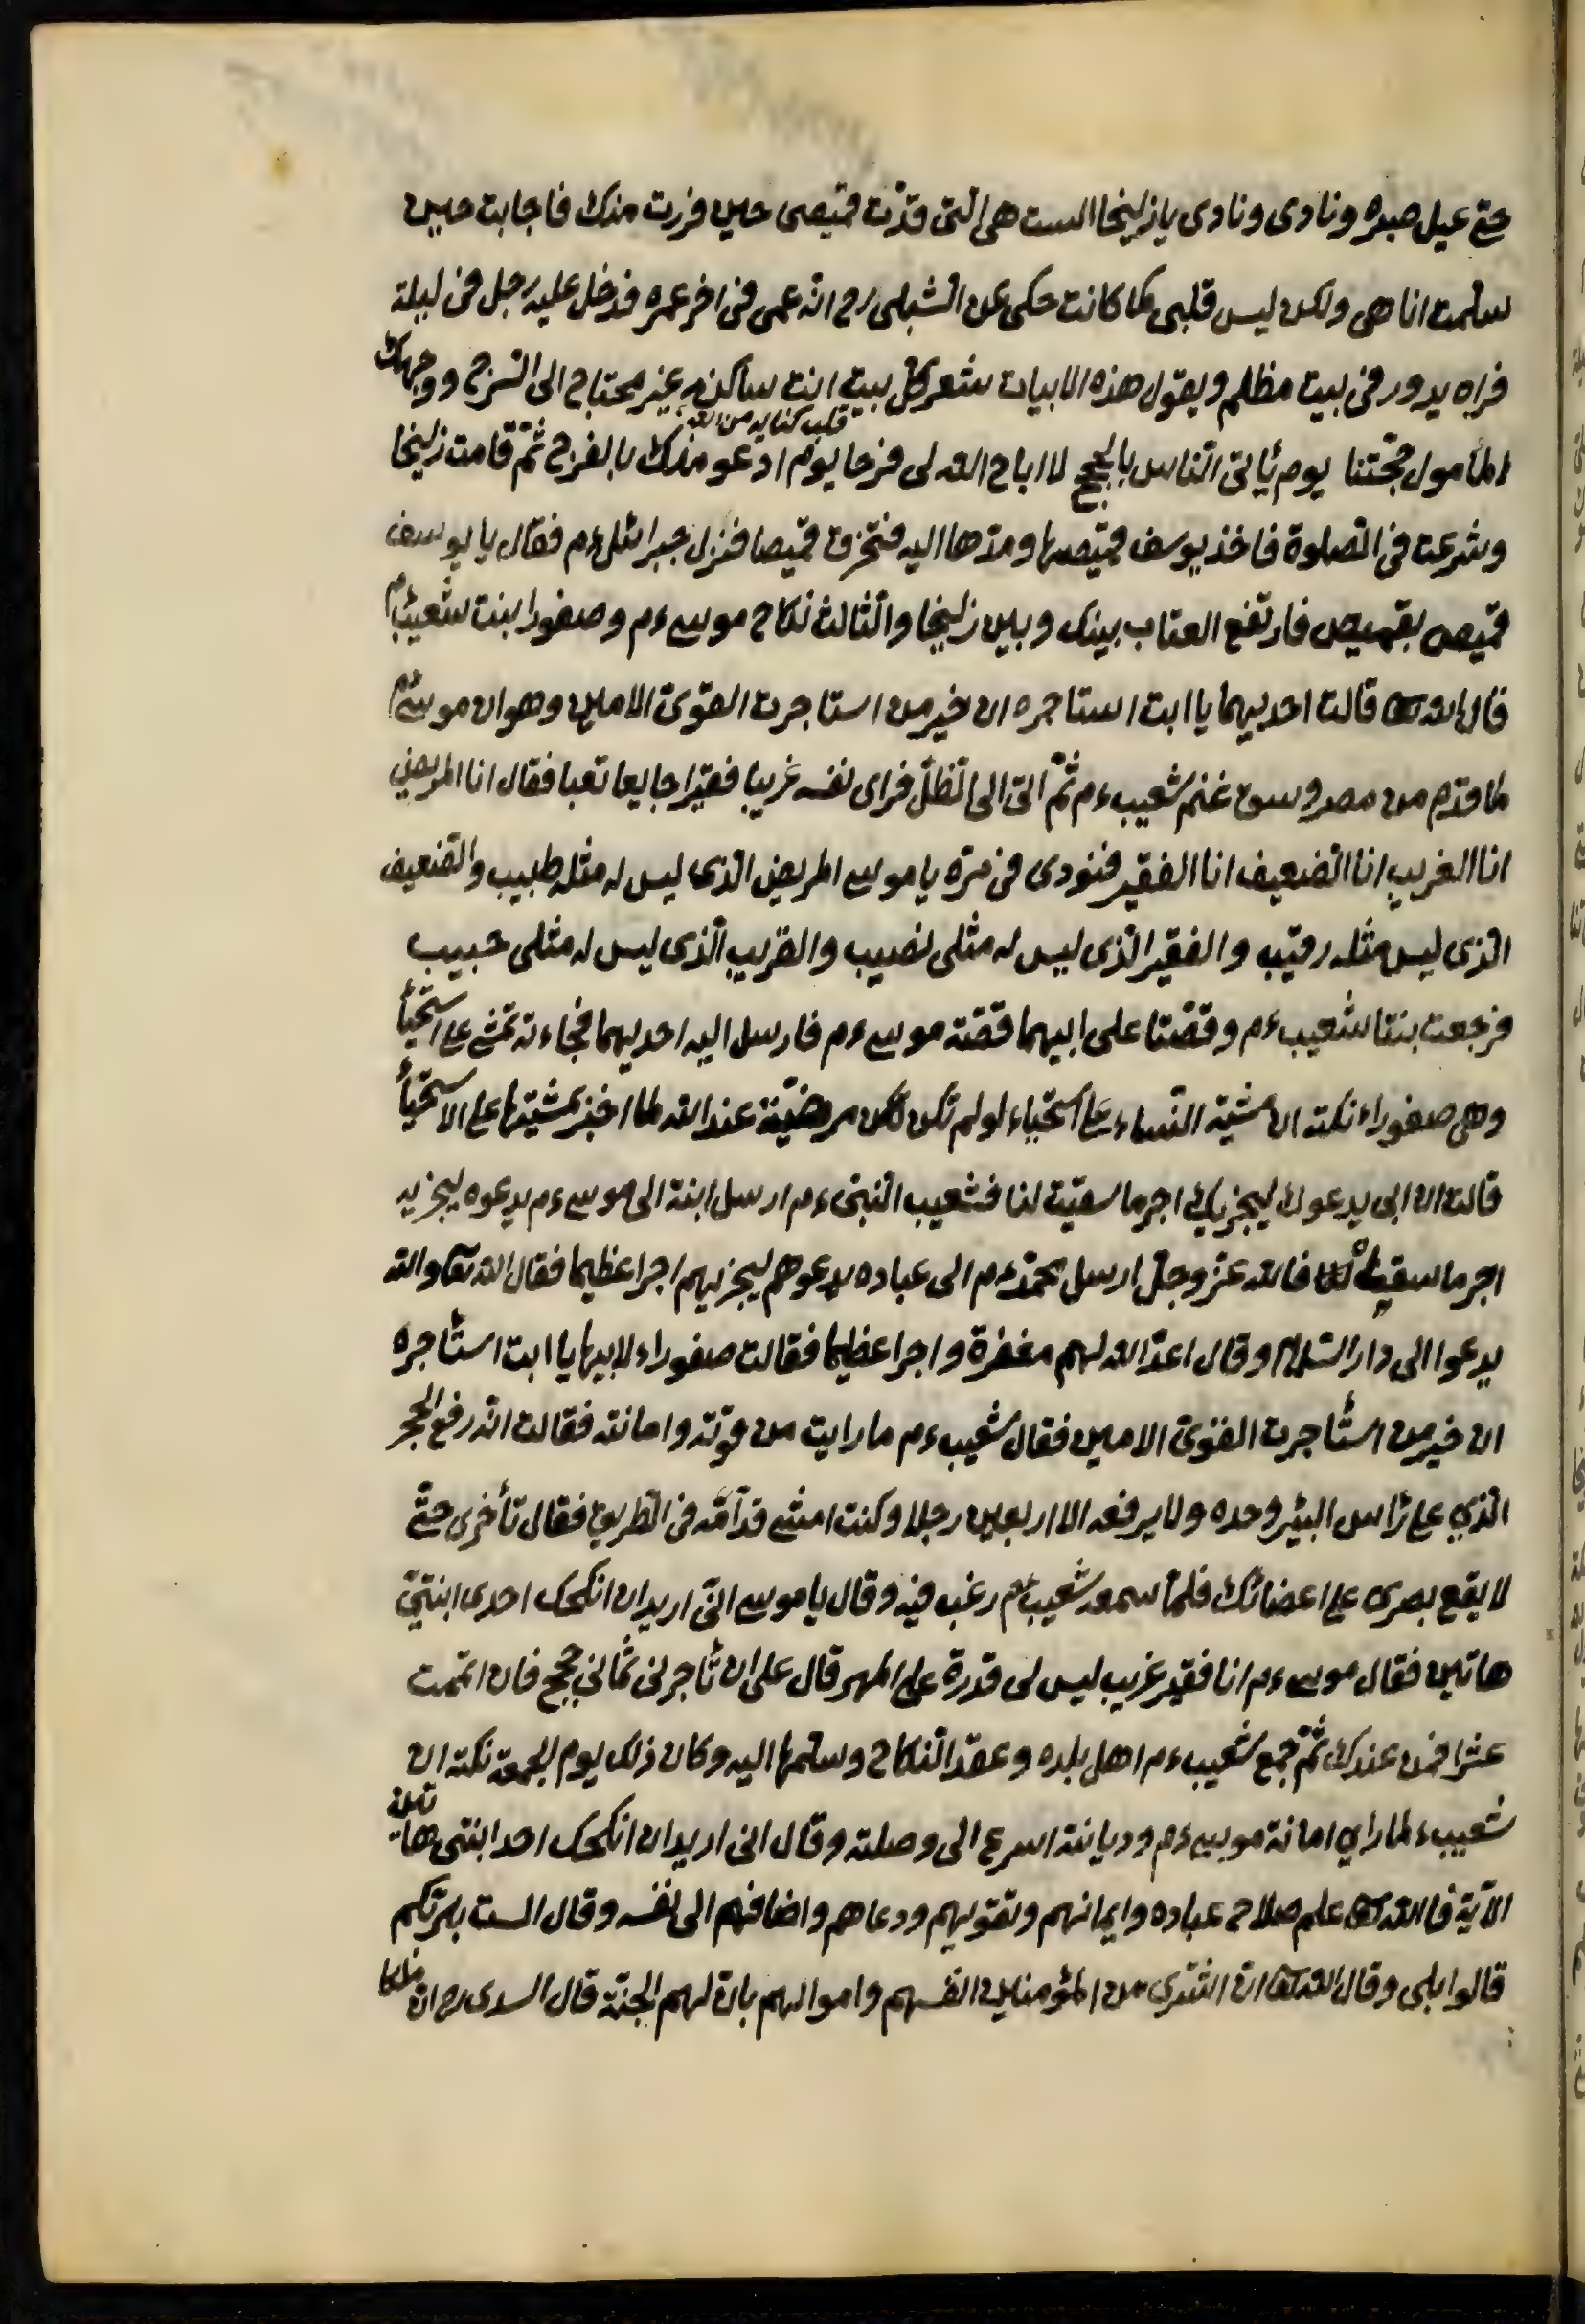 حتى عيل صبره ونادى ونادى يا زليخا الست هى التى قدّت قميصى حين فررت منك فاجابت حين
سلمت انا هى ولكن ليس قلبى كما كانت حكى عن الشبلى رح انه عمى فى اخر عمره فدخل عليه رجل فى ليلة
فراه يدور فى بيت مظلم ويقول هذه الابيات شعر كل بيت انت ساكنه غير محتاج الى السّرج ووجهك
قلب كنايه من الله
المأمول حجّتنا يوم يأتى النّاس بالحجج لا اباح الله لى فرحا يوم ادعو منك بالفرج ثمّ قامت زليخا
وشرعت فى الصلوة فاخذ يوسف قميصها ومدّها اليه فتخرق قميصا فنزل جبرائل ءم فقال يا يوسف
قميص بقميص فارتفع العتاب بينك وبين زليخا والثالث نكاح موسى ءم وصفورا بنت شعيب ءم
قال الله تعا قالت احديهما يا ابت استاجره ان خير من استاجرت القوىّ الامين وهو ان موسى ءم
لما قدم من مصر وسق غنم شعيب ءم ثمّ اتى الى الظلّ فراى نفسه غريبا فقيرا جايعا تعبا فقال انا المريض
انا الغريب انا الضعيف انا الفقير فنودى فى سرّه يا موسى المريض الذى ليس له مثله طبيب والضعيف
الذى ليس مثله رقيب والفقير الذى ليس له مثلى نصيب والغريب الذى ليس له مثلى حبيب
فرجعت بنتا شعيب ءم وقصّتا على ابيهما قصّة موسى ءم فارسل اليه احديهما فجاءته تمشى على استحيأ
وهى صفوراء نكته ان مشية النّساء على استحياء لو لم تكن مرضيّة عند الله لما اخبر بمشيتها على الاستحيأ
قالت ان ابى يدعوك ليجزيك اجر ما سقيت لنا فشعيب النبى ءم ارسل ابنته الى موسى ءم يدعوه ليجزيه
اجر ما سقى فالله عزّ وجلّ ارسل محمّد ءم الى عباده يدعوهم ليجزيهم اجرا عظيما فقال الله تعا والله
يدعوا الى دار السّلام وقال اعدّ الله لهم مغفرة واجرا عظيما فقالت صفوراء لابيها يا ابت استأجره
ان خير من استأجرت القوىّ الامين فقال شعيب ءم ما رايت من قوّته وامانته فقالت انّه رفع الحجر
الذي على رأس البئر وحده ولا يرفعه الا اربعين رجلا وكنت امشى قدّامه فى الطريق فقال تأخرى حتّى
لا يقع بصرى على اعضائك فلمّا سمعه شعيب ءم رغب فيه وقال يا موسى انّى اريد ان انكحك احدى ابنتيّ
هاتين فقال موسى ءم انا فقير غريب ليس لى قدرة على المهر قال على ان تأجرنى ثمانى حجج فان اتممت
عشرا فمن عندك ثمّ جمع شعيب ءم اهل بلده وعقد النكاح وسلّمها اليه وكان ذلك يوم الجمعة نكته ان
شعيب ء لما راى امانة موسى ءم وديانته اسرع الى وصلته وقال انى اريد ان انكحك احد ابنتى هاتين
الآية فالله تعا علم صلاح عباده وايمانهم وتقويهم ودعاهم واضافهم الى نفسه وقال الست بربّكم
قالوا بلى وقال الله تعا ان اشترى من المؤمنين انفسهم واموالهم بانّ لهم الجنّة قال السدى رح ان ملكا